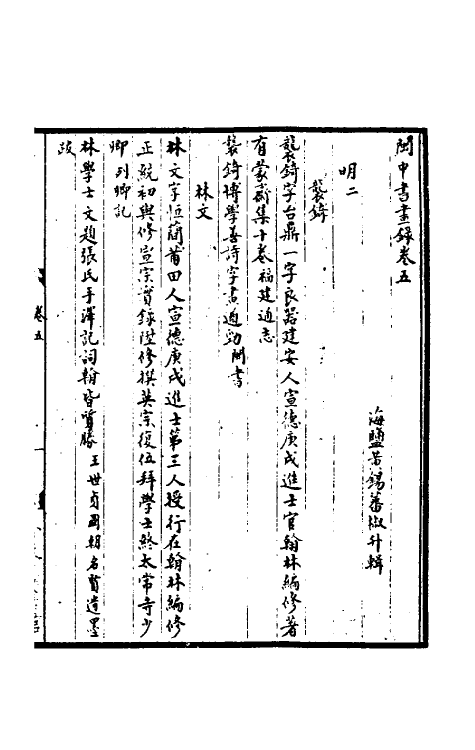 閩中書畫錄卷五
海鹽黃錫蕃椒升輯
明二
龔錡
龔錡字台鼎一字良器建安人宣德庚戌進士官翰林編修著
有蒙齋集十卷福建通志
龔錡博學善詩字畫遒勁閩書
林文
林文字恒簡莆田人宣德庚戌進士第三人授行在翰林編修
正統初與修宣宗實錄陞修撰英宗復位拜學士終太常寺少
卿列卿記
林學士文題張氏手澤記詞翰皆質勝王世貞國朝名賢遺墨
跋
卷五
一